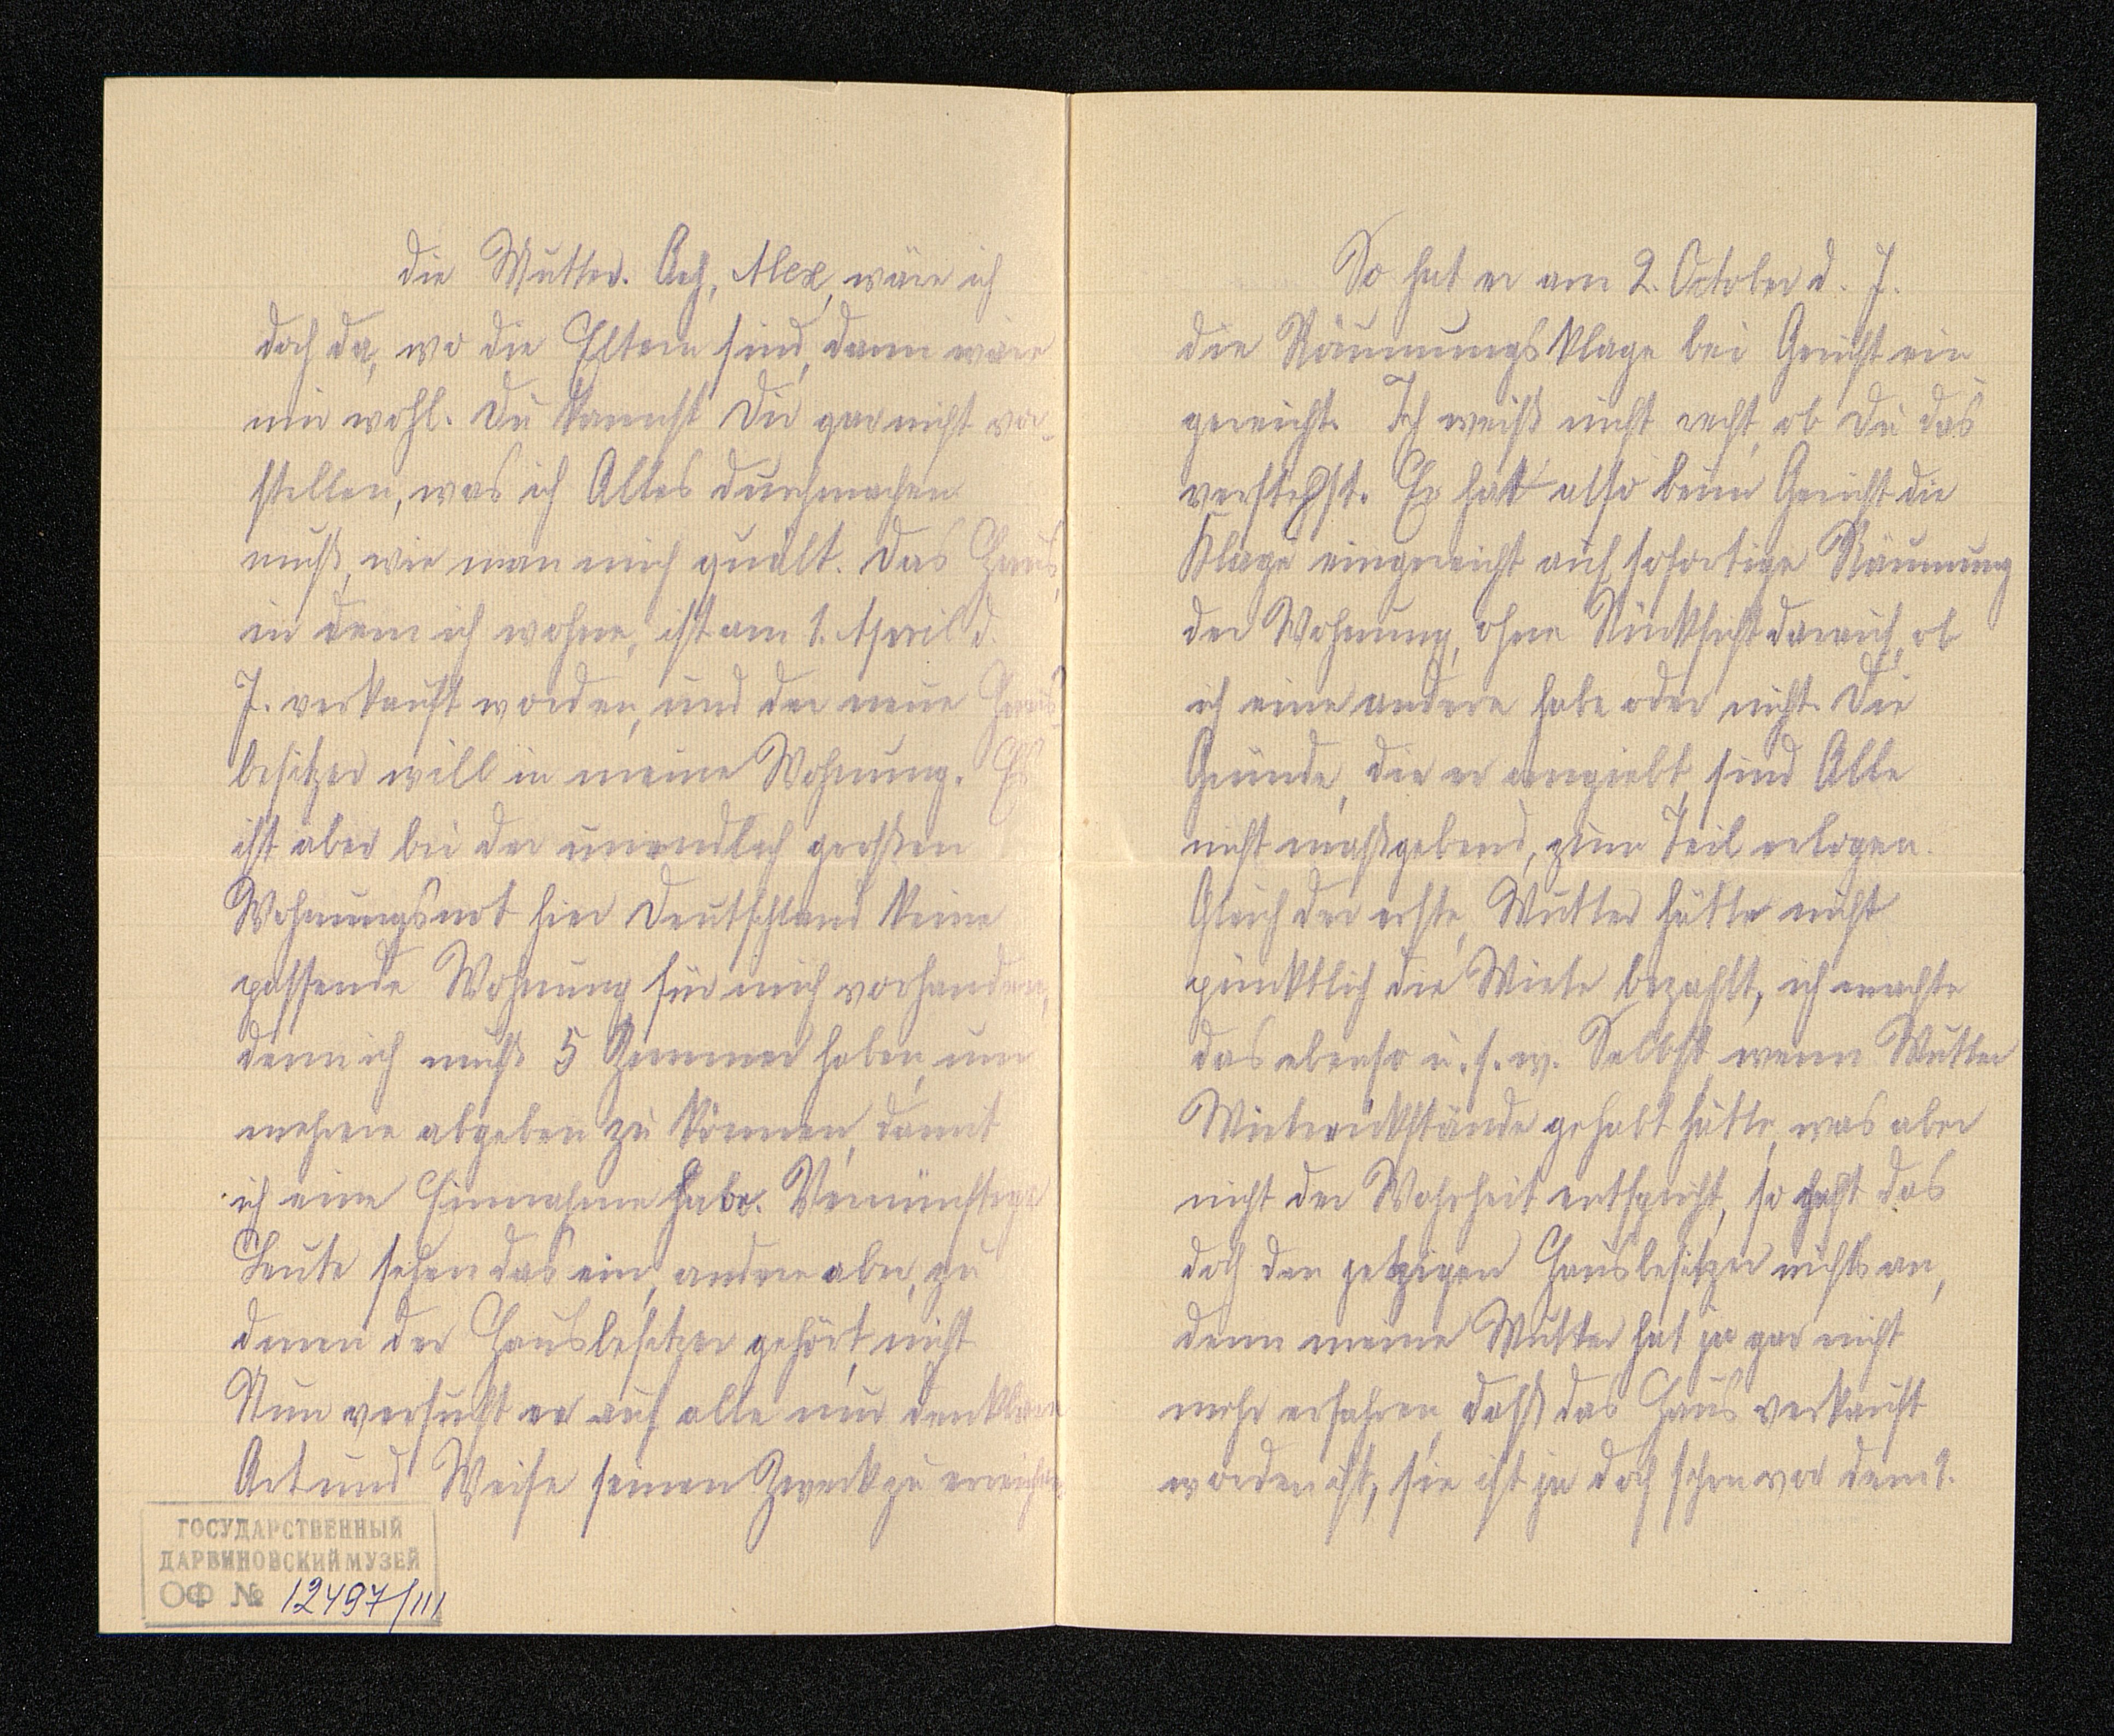 die Mutter. Ach, Alex, wäre ich
doch da, wo die Eltern sind, dann wäre
mir wohl. Du kannst Dir gar nicht vor-
stellen, was ich Alles durchmachen
muß, wie man mich quält. Das Haus,
in dem ich wohne, ist am 1. April d.
J. verkauft worden, und der neue Haus-
besitzer will in meine Wohnung. Es
ist aber bei der unendlich großen
Wohnungsnot hier Deutschland keine
passende Wohnung für mich vorhanden,
denn ich muß 5 Zimmer haben, um
mehrere abgeben zu können, damit
ich eine Einnahme habe. Vernünftige
Leute sehen das ein, andere aber, zu
denen der Hausbesitzer gehört, nicht
Nun versucht er auf alle nur denkbare
Art und Weise seinen Zweck zu erreichen.
ГОСУДАРСТВЕННЫЙ
ДАРВИНОВСКИЙ МУЗЕЙ
ОФ № 12497/III
So hat er am 2. October d. J.
die Räumungsklage bei Gericht ein-
gereicht. Ich weiß nicht recht, ob Du das
verstehst. Er hat also beim Gericht die
Klage eingereicht auf sofortige Räumung
der Wohnung, ohne Rücksicht darauf, ob
ich eine andere habe oder nicht. Die
Gründe, die er angiebt, sind Alle
nicht maßgebend, zum Teil erlogen.
Gleich der erste, Mutter hätte nicht
pünktlich die Miete bezahlt, ich machte
das ebenso u. s. w. Selbst, wenn Mutter
Mietrückstände gehabt hätte, was aber
nicht der Wahrheit entspricht, so geht das
doch den jetzigen Hausbesitzer nichts an,
denn meine Mutter hat ja gar nicht
mehr erfahren, daß das Haus verkauft
worden ist, sie ist ja doch schon vor dem 1.